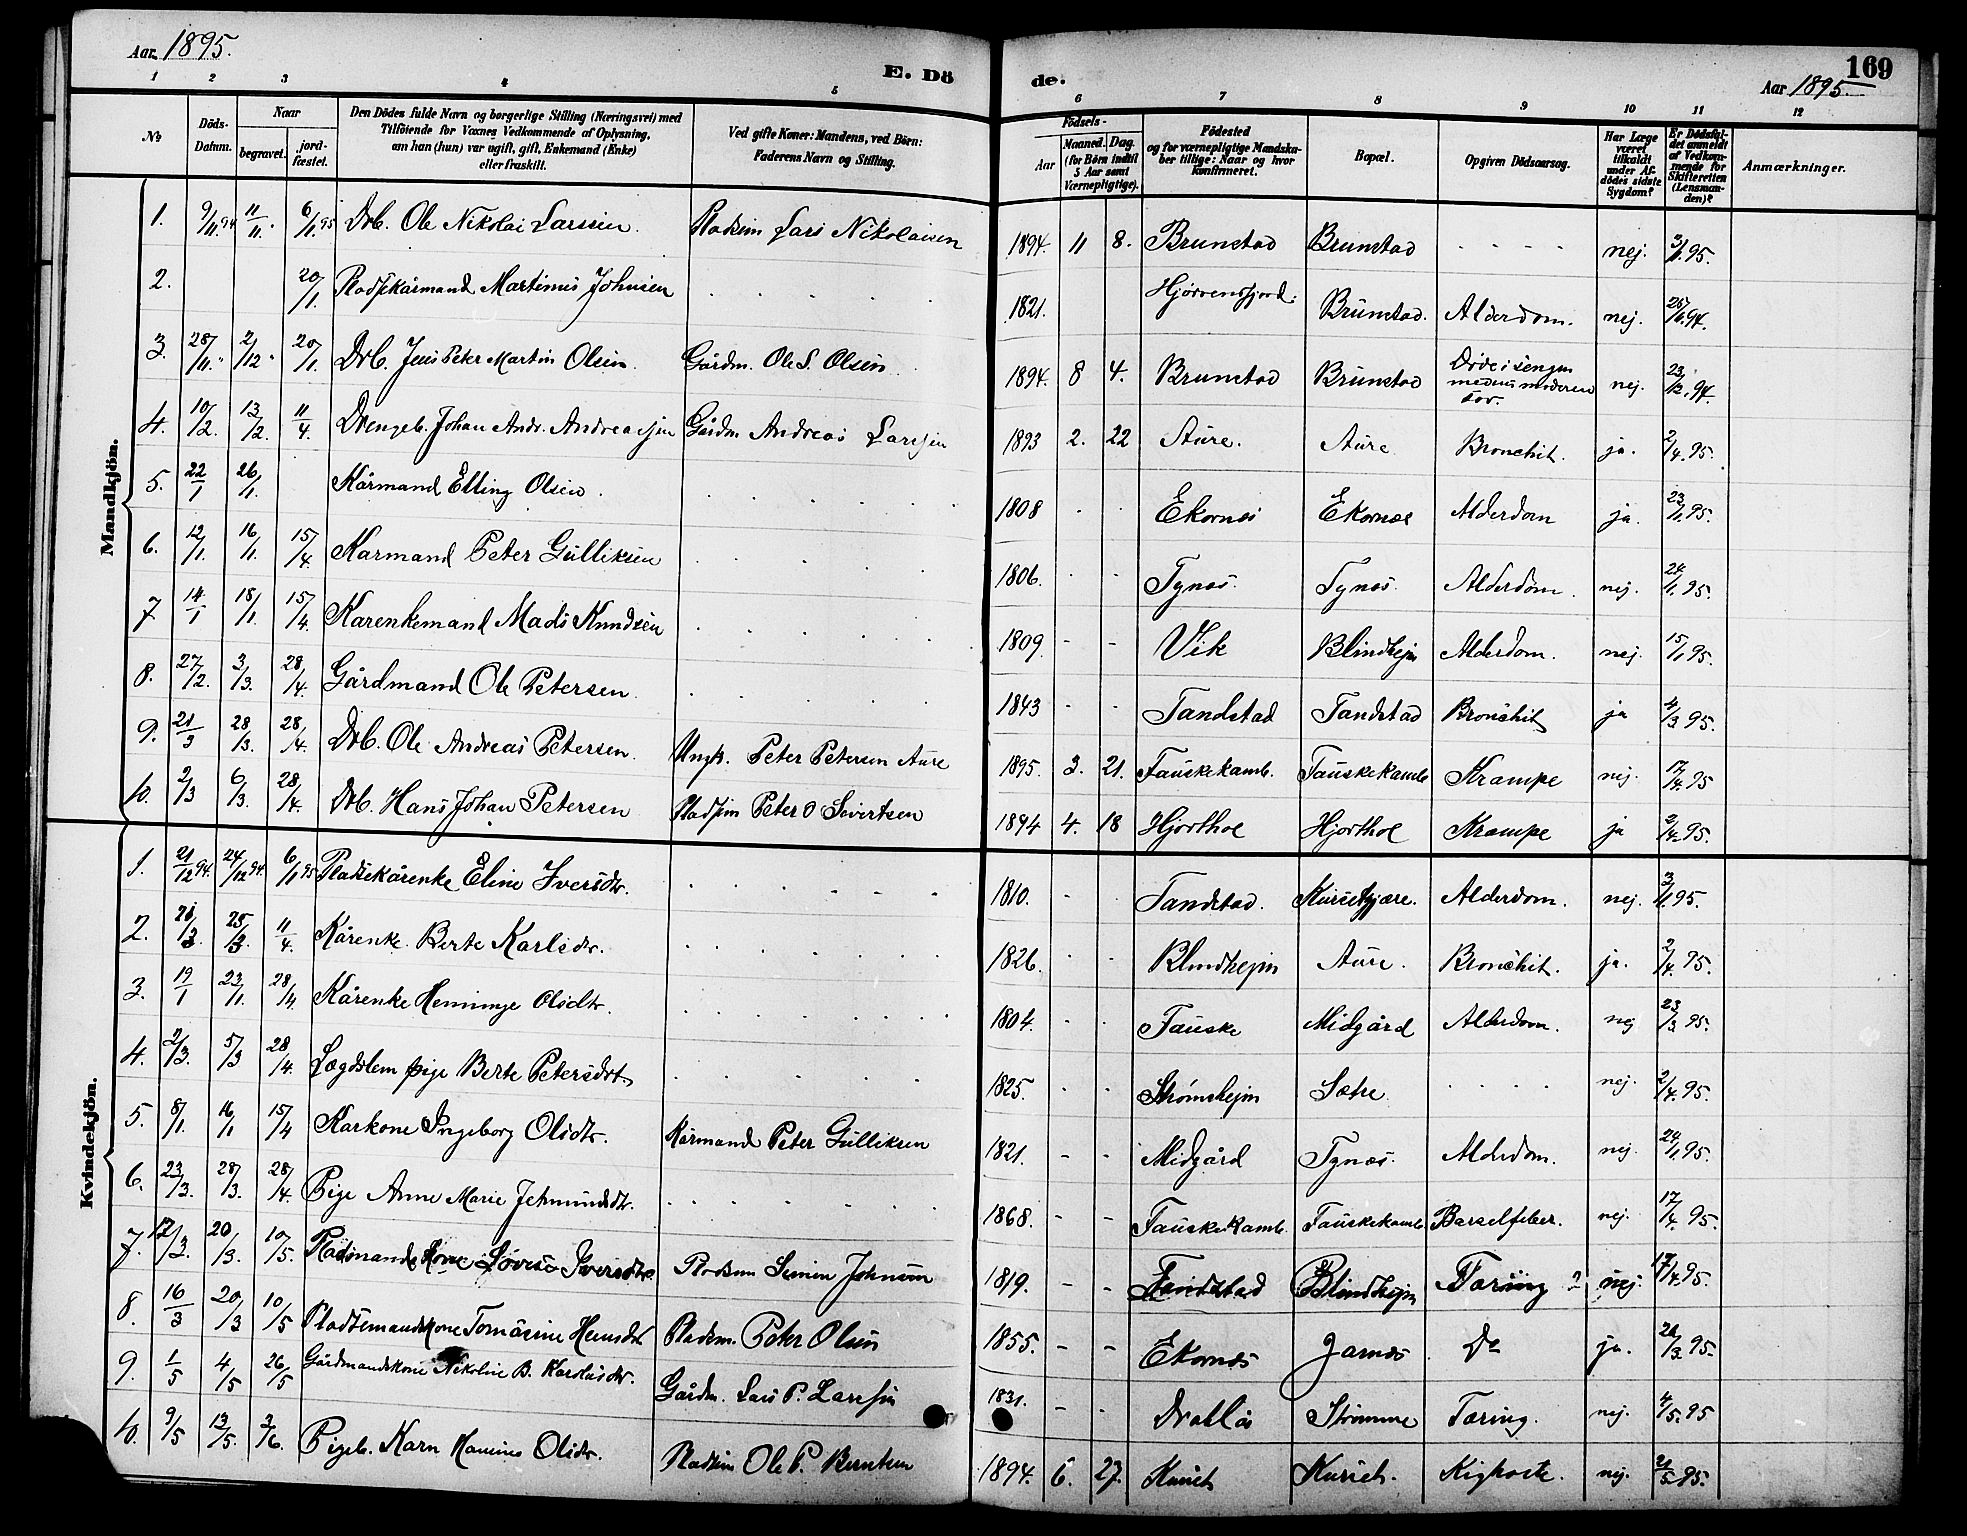 Aar 1895.
E. Dö
de.
169
Aar 1895.
1 2 3 4 5 6 7 8 9 10 11 12
No
Döds-Datum.
Naar
begravet.
jord-fæstet.
Den Dödes fulde Navn og borgerlige Stilling (Næringsvei) med
Tilföiende for Voxnes Vedkommende af Oplysning,
om han (hun) var ugift, gift, Enkemand (Enke)
eller fraskilt.
Ved gifte Koner: Mandens, ved Börn:
Faderens Navn og Stilling.
Födsels-
Aar
Maaned. Dag.
(for Börn indtil
5 Aar samt
Værnepligtige).
Födested
og for værnepligtige Mandska-
ber tillige: Naar og hvor
konfirmeret.
Bopæl.
Opgiven Dödsaarsag.
Har Læge
været
tilkaldt
under Af-
dödes sidste
Sygdom?
Er Dödsfal-
det anmeldt
af Vedkom-
mende for
Skifteretten
(Lensman-
den)?
Anmærkninger.
Mandkjön.
1. 9/11 94 11/11 " 6/1 95 Drb. Ole Nikolai Larssen. Pladsm Lars Nikolaisen 1894. 11 8. Brunstad Brunstad - - - - nej. 3/1 95.
2. 20/1. Pladskårmand Martinus Johnsen 1821. Hjørrensfjord. Brunstad. Alderdom. nej. 94.
3. 28/11 " 2/12 " 20/1 Drb. Jens Peter Martin Olsen. Gårdm. Ole S. Olsen. 1894. 8 4. Brunstad Brunstad Døde i sengen medens moderen sov. nej. 23/12. 94.
4. 10/2. 13/2. 11/4. Drengeb. Johan Andr. Andreassen Gårdm Andreas Larssen 1893 2. 22 Aure. Aure Bronchit. ja. 2/4. 95.
5. 22/1 26/1. Kårmand Elling Olsen. 1808 Ekornes Ekornes Alderdom ja. 23/1. 95.
6. 12/1. 16/1. 15/4 Karmand Peter Gulliksen 1806. Tynes. Tynes. Alderdom. nej. 24/1. 95.
7 14/1 18/1. 15/4. Karenkemand Mads Knudsen 1809 - - Vik Blindhejm Alderdom. nej. 15/1 95.
8. 27/2. 3/3. 28/4. Gårdmand Ole Petersen. 1843 Tandstad Tandstad Bronchit ja 4/3 95.
9. 21/3 28/3. 28/4. Drb. Ole Andreas Petersen. Ungk. Peter Petersen Aure 1895. 3. 21. Fauskekamb. Fauskekamb Krampe nej. 17/4. 95
10. 2/3 6/3. 28/4. Drb. Hans Johan Petersen Pladsm Peter O Sivertsen 1894 4. 18 Hjorthol Hjorthol Krampe ja 2/4. 95.
Kvindekjön.
1. 21/12 94. 24/12 94. 6/1 95 Pladskårenke Eline Iversdtr. 1810. Tandstad. Alderdom. nej. 3/1. 95.
2. 25/3. 11/4. Kårenke. Berte Karlsdtr. 1826. Blindhejm Aure. Bronchit. ja. 2/4. 95.
3. 19/1 23/1. 28/4 Kårenke Henninge Olsdtr. 1804. Fauske Midgård Alderdom. nej 23/3 95.
4. 2/3. 5/3 28/4. Lægdslem pige Berte Petersdtr 1825. Strømshejm Sætre. nej. 2/4. 95.
5. 8/1. 16/1 15/4 Karkone Ingeborg Olsdtr. Kårmand Peter Gulliksen 1821. - - Midgård Tynæs. Alderdom. nej. 24/1. 95.
6. 23/3. 28/3. 28/4. Pige Anne Marie Jetmundsdtr. 1868. - - Fauskekamb. Fauskekamb Barselfeber. nej. 17/4. 95.
7. 12/3. 20/3. 10/5. Pladsmands Kone Iversdtr. Pladsm Simon Johnsen 1819. - - Tandstad Blindhejm Tæring ? nej. 17/4. 95.
8. 16/3 20/3 10/5 Pladsmandskone Tomasine Hansdtr Pladsm. Peter Olsen 1855. - - Ekornes Jarnes Do ja. 95.
9. 1/5 4/5 26/5 Gårdmandskone Nikoline B. Karolusdtr. Gårdm. Lars P. Larssen 1831. - - Drotlås Strømme Tæring. nej. 4/5. 95
10. 9/5 13/5. 3/6. Pigeb. Karn Olsdtr. Pladsm Ole P. Berntsen 1894. 6. 27. Kurset Kurset. Kighoste. nej. 21/5. 95.